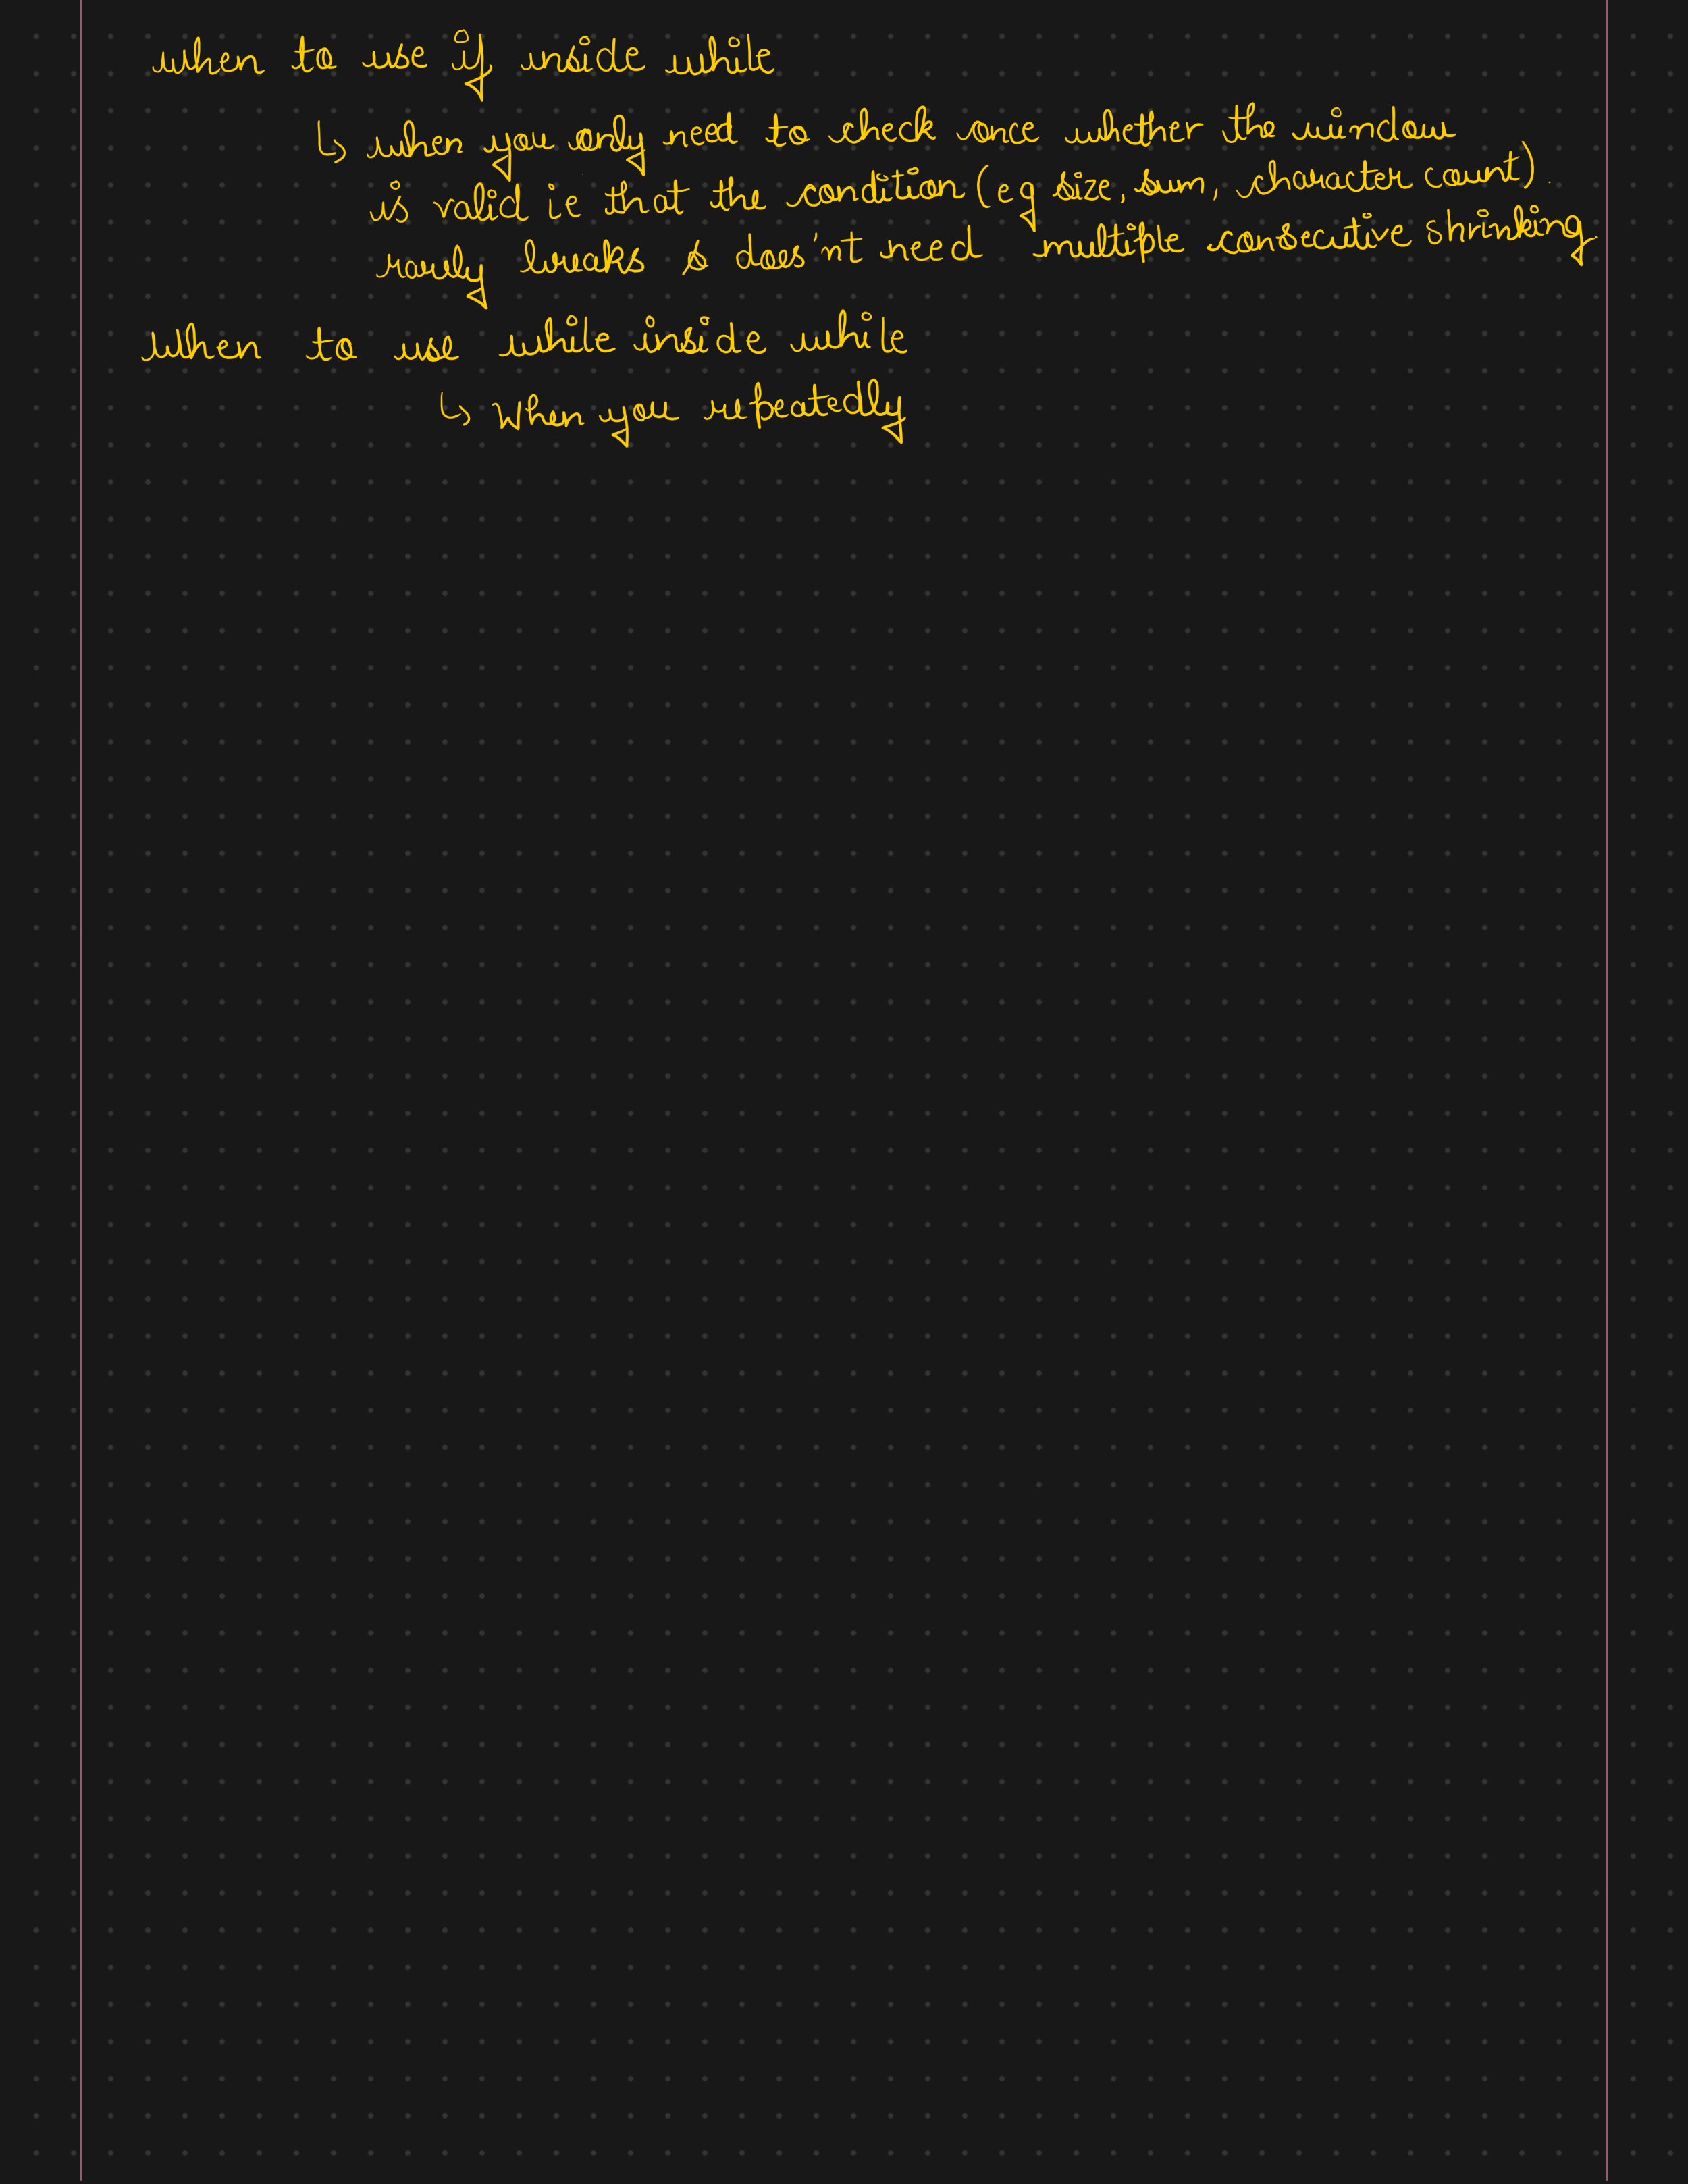 when to use if inside while
↳ when you only need to check once whether the window
is valid ie that the condition (eg size, sum, character count).
rarely breaks & does'nt need multiple consecutive shrinking
When to use while inside while
↳ When you repeatedly